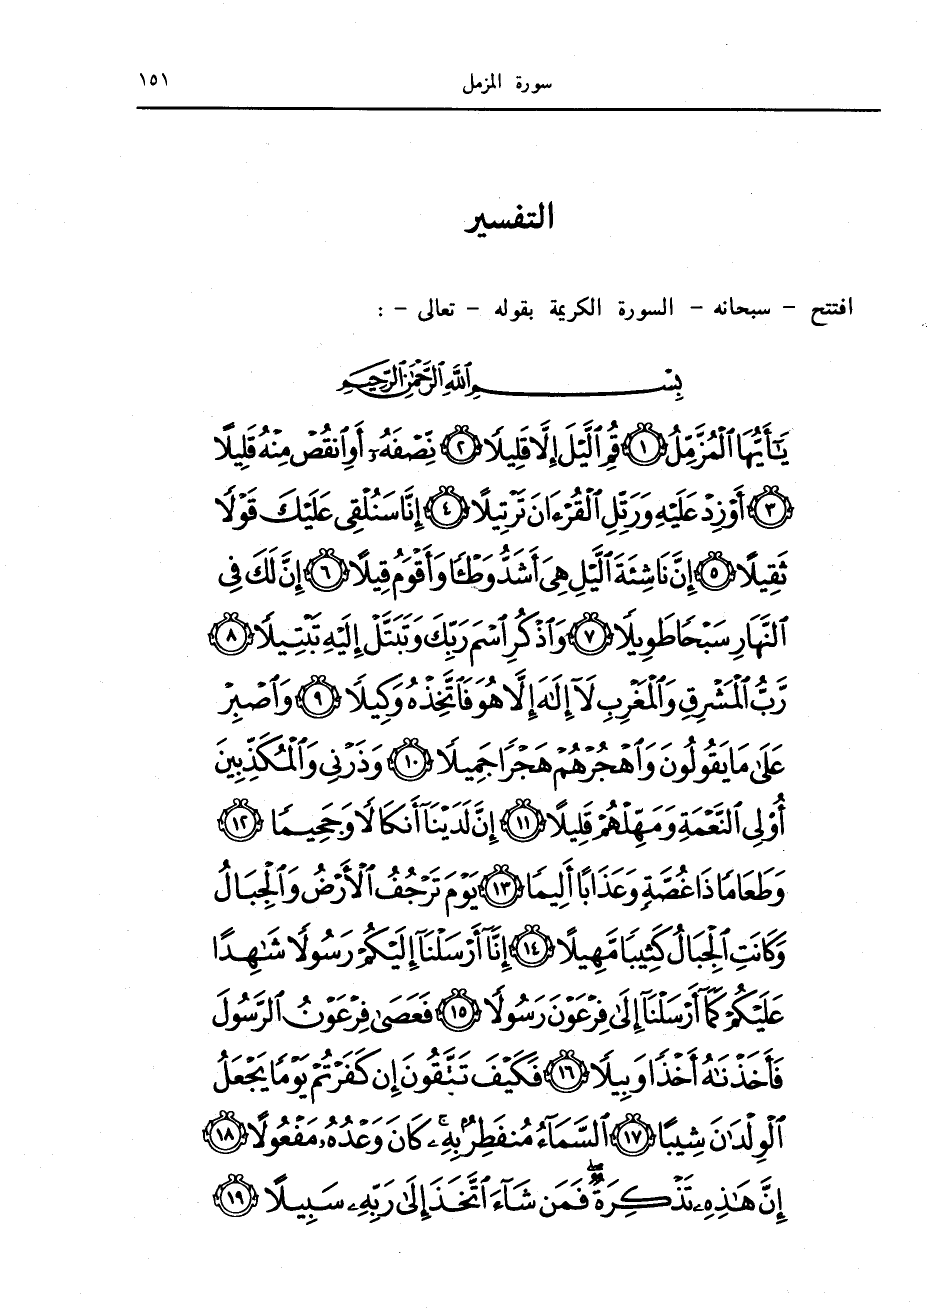 سورة المزمل ١٥١
التفسير
افتتح - سبحانه - السورة الكريمة بقوله - تعالى - :
بِسْمِ ٱللَّهِ ٱلرَّحْمَٰنِ ٱلرَّحِيمِ
يَٰٓأَيُّهَا ٱلْمُزَّمِّلُ ﴿١﴾ قُمِ ٱلَّيْلَ إِلَّا قَلِيلًا ﴿٢﴾ نِّصْفَهُۥٓ أَوِ ٱنقُصْ مِنْهُ قَلِيلًا
﴿٣﴾ أَوْ زِدْ عَلَيْهِ وَرَتِّلِ ٱلْقُرْءَانَ تَرْتِيلًا ﴿٤﴾ إِنَّا سَنُلْقِى عَلَيْكَ قَوْلًا
ثَقِيلًا ﴿٥﴾ إِنَّ نَاشِئَةَ ٱلَّيْلِ هِىَ أَشَدُّ وَطْـًٔا وَأَقْوَمُ قِيلًا ﴿٦﴾ إِنَّ لَكَ فِى
ٱلنَّهَارِ سَبْحًا طَوِيلًا ﴿٧﴾ وَٱذْكُرِ ٱسْمَ رَبِّكَ وَتَبَتَّلْ إِلَيْهِ تَبْتِيلًا ﴿٨﴾
رَّبُّ ٱلْمَشْرِقِ وَٱلْمَغْرِبِ لَآ إِلَٰهَ إِلَّا هُوَ فَٱتَّخِذْهُ وَكِيلًا ﴿٩﴾ وَٱصْبِرْ
عَلَىٰ مَا يَقُولُونَ وَٱهْجُرْهُمْ هَجْرًا جَمِيلًا ﴿١٠﴾ وَذَرْنِى وَٱلْمُكَذِّبِينَ
أُو۟لِى ٱلنَّعْمَةِ وَمَهِّلْهُمْ قَلِيلًا ﴿١١﴾ إِنَّ لَدَيْنَآ أَنكَالًا وَجَحِيمًا ﴿١٢﴾
وَطَعَامًا ذَا غُصَّةٍ وَعَذَابًا أَلِيمًا ﴿١٣﴾ يَوْمَ تَرْجُفُ ٱلْأَرْضُ وَٱلْجِبَالُ
وَكَانَتِ ٱلْجِبَالُ كَثِيبًا مَّهِيلًا ﴿١٤﴾ إِنَّآ أَرْسَلْنَآ إِلَيْكُمْ رَسُولًا شَٰهِدًا
عَلَيْكُمْ كَمَآ أَرْسَلْنَآ إِلَىٰ فِرْعَوْنَ رَسُولًا ﴿١٥﴾ فَعَصَىٰ فِرْعَوْنُ ٱلرَّسُولَ
فَأَخَذْنَٰهُ أَخْذًا وَبِيلًا ﴿١٦﴾ فَكَيْفَ تَتَّقُونَ إِن كَفَرْتُمْ يَوْمًا يَجْعَلُ
ٱلْوِلْدَٰنَ شِيبًا ﴿١٧﴾ ٱلسَّمَآءُ مُنفَطِرٌۢ بِهِۦ ۚ كَانَ وَعْدُهُۥ مَفْعُولًا ﴿١٨﴾
إِنَّ هَٰذِهِۦ تَذْكِرَةٌ ۖ فَمَن شَآءَ ٱتَّخَذَ إِلَىٰ رَبِّهِۦ سَبِيلًا ﴿١٩﴾